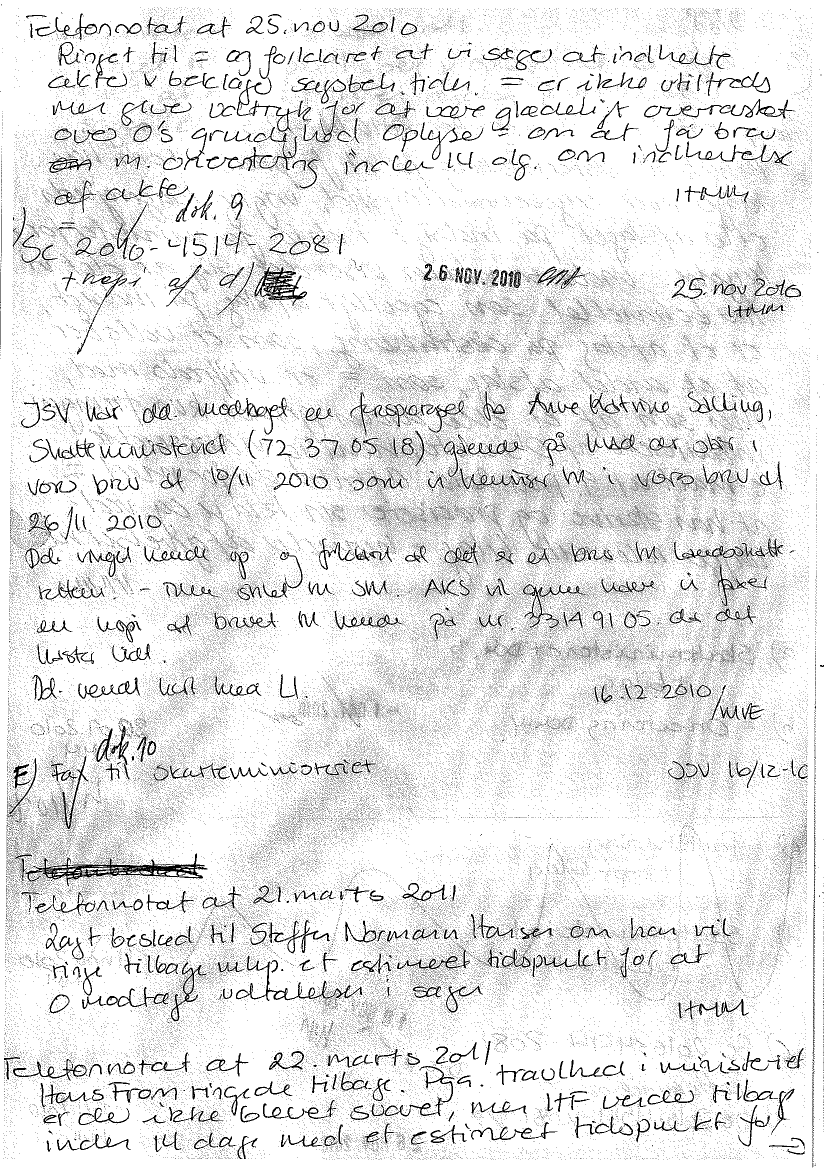 Telefonnotat af 25. nov 2010
Ringet til = og forklaret at vi søger at indhente
akter & beklage sagsbeh. tiden. = er ikke utilfreds
men giver udtryk for at være glædeligt overrasket
over O's grundighed Oplyse = om at få brev
m. orientering inden 14 dg. om indhentelse
af akter
HMM
dok. 9
=
Sc 2010-4514-2081
+ kopi af d)
26 NOV. 2010
25. nov 2010
HMM
JSV har dd. modtaget en forespørgsel fra Anne Katrine Salling,
Skatteministeriet (72 37 05 18) gående på hvad der står i
vores brev af 10/11 2010 som vi henviser til i vores brev af
26/11 2010.
Dd. ringet hende op og forklaret at det er et brev til Landsskatte-
retten. - men sendt til SM. AKS vil gerne have vi faxer
en kopi af brevet til hende på nr. 33149105 da det
haster lidt.
Dd. vendt kort med LI.
16.12 2010
/MVE
dok. 10
E) Fax til Skatteministeriet
JSV 16/12-10
Telefonnotat af 21. marts 2011
Lagt besked til Steffen Normann Hansen om han vil
ringe tilbage mhp. et estimeret tidspunkt for at
O modtage udtalelser i sagen
HMM
Telefonnotat af 22. marts 2011
Hans From ringede tilbage. Pga. travlhed i ministeriet
er de ikke blevet svaret, men HF vender tilbage
inden 14 dage med et estimeret tidspunkt for